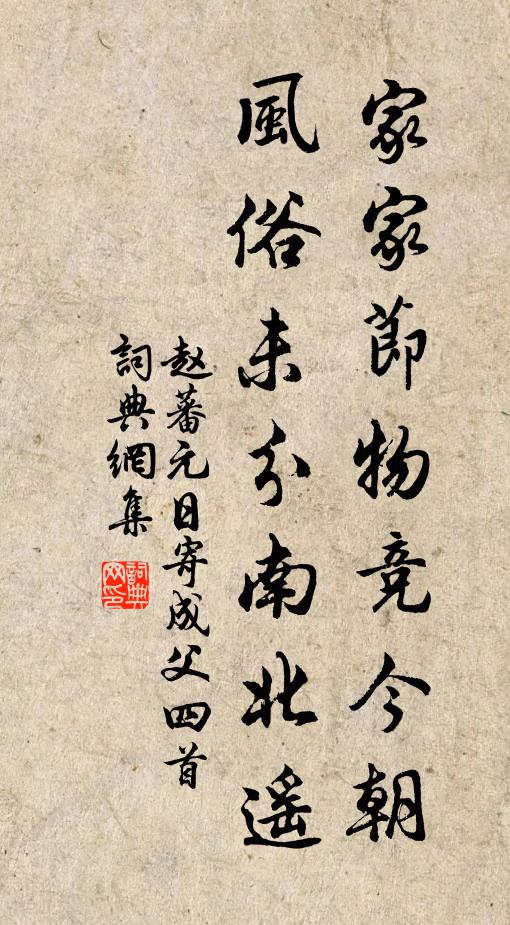 家家節物竞今朝
風俗未分南北遥
赵蕃元日寄成父四首
詞典網集
詞典网印